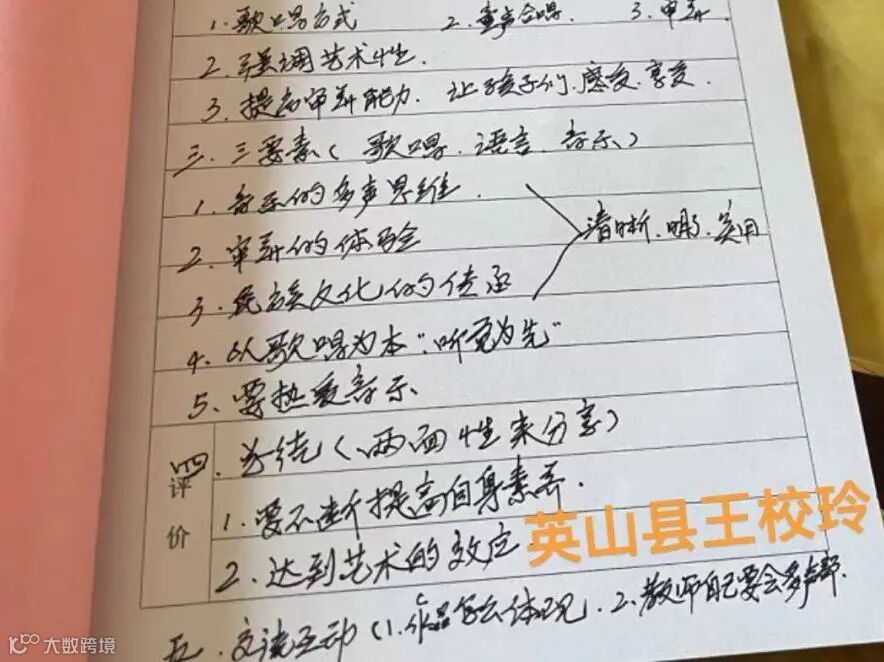 1. 歌唱方式 2. 童声合唱 3. 审美.
2. 强调艺术性.
3. 提高审美能力. 让孩子们.感受.享受.
三. 三要素(歌唱.语言.音乐)
1. 音乐的多声思维.
2. 审美的体验
3. 民族文化的传承
清晰.明了.实用
4. 以歌唱为本"听觉为先"
5. 要热爱音乐.
四. 总结(两面性来分享)
评价
1. 要不断提高自身素养.
2. 达到艺术的效应
英山县王校玲
五. 交流互动(1. 作品怎么体现. 2. 教师自己要会多声部.
大数跨境